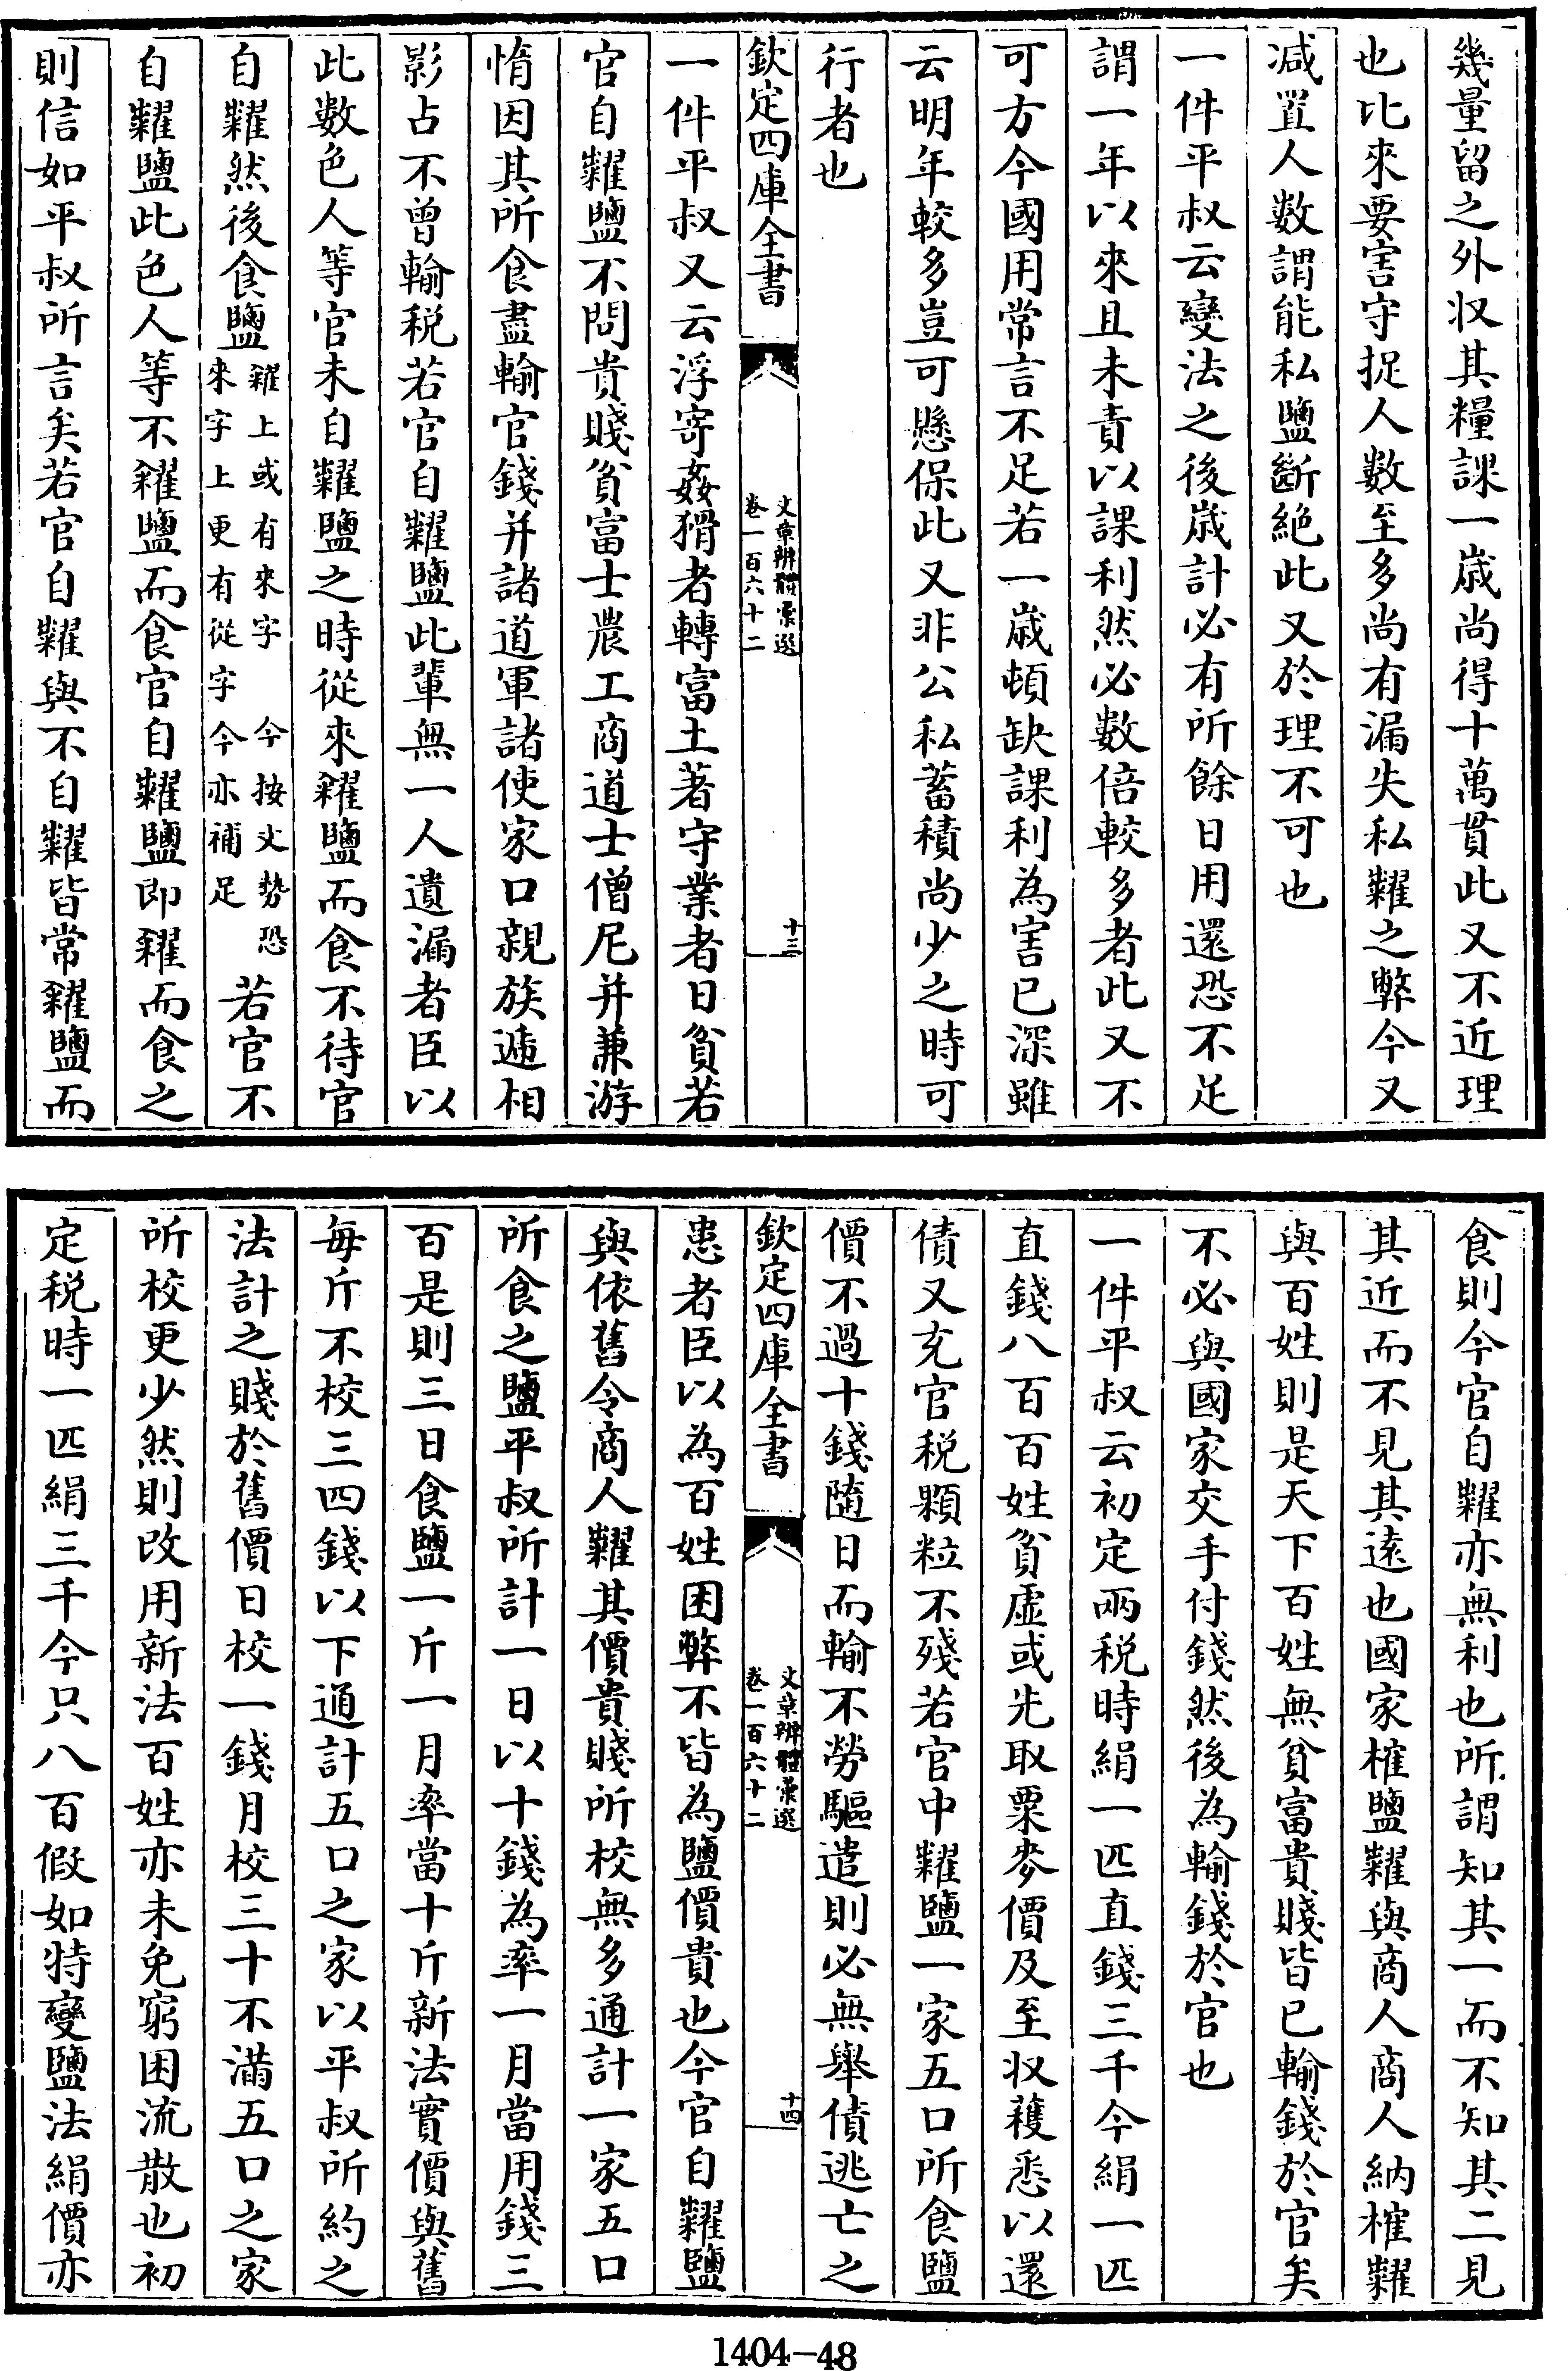 幾量留之外収其糧課一嵗尚得十萬貫此又不近理
也比來要害守捉人數至多尚有漏失私糶之弊今又
減置人數謂能私鹽斷絶此又於理不可也
一件平叔云變法之後嵗計必有所餘日用還恐不足
謂一年以來且未責以課利然必數倍較多者此又不
可方今國用常言不足若一嵗頓缺課利為害已深雖
云明年較多豈可懸保此又非公私蓄積尚少之時可
行者也
欽定四庫全書
文章辨體彚選
卷一百六十二
十三
一件平叔又云浮寄姦猾者轉富土著守業者日貧若
官自糶鹽不問貴賤貧富士農工商道士僧尼并兼游
惰因其所食盡輸官錢并諸道軍諸使家口親族遞相
影占不曾輸税若官自糶鹽此輩無一人遺漏者臣以
此數色人等官未自糶鹽之時從來糴鹽而食不待官
自糶然後食鹽糴上或有來字 今按文勢恐
來字上更有從字 今亦補足
若官不
自糶鹽此色人等不糴鹽而食官自糶鹽即糴而食之
則信如平叔所言矣若官自糶與不自糶皆常糴鹽而
食則今官自糶亦無利也所謂知其一而不知其二見
其近而不見其遠也國家榷鹽糶與商人商人納榷糶
與百姓則是天下百姓無貧富貴賤皆已輸錢於官矣
不必與國家交手付錢然後為輸錢於官也
一件平叔云初定兩税時絹一匹直錢三千今絹一匹
直錢八百百姓貧虛或先取粟麥價及至収穫悉以還
債又充官税顆粒不殘若官中糶鹽一家五口所食鹽
價不過十錢隨日而輸不勞驅遣則必無舉債逃亡之
欽定四庫全書
文章辨體彚選
卷一百六十二
十四
患者臣以為百姓困弊不皆為鹽價貴也今官自糶鹽
與依舊令商人糶其價貴賤所校無多通計一家五口
所食之鹽平叔所計一日以十錢為率一月當用錢三
百是則三日食鹽一斤一月率當十斤新法實價與舊
每斤不校三四錢以下通計五口之家以平叔所約之
法計之賤於舊價日校一錢月校三十不滿五口之家
所校更少然則改用新法百姓亦未免窮困流散也初
定税時一匹絹三千今只八百假如特變鹽法絹價亦
1404-48